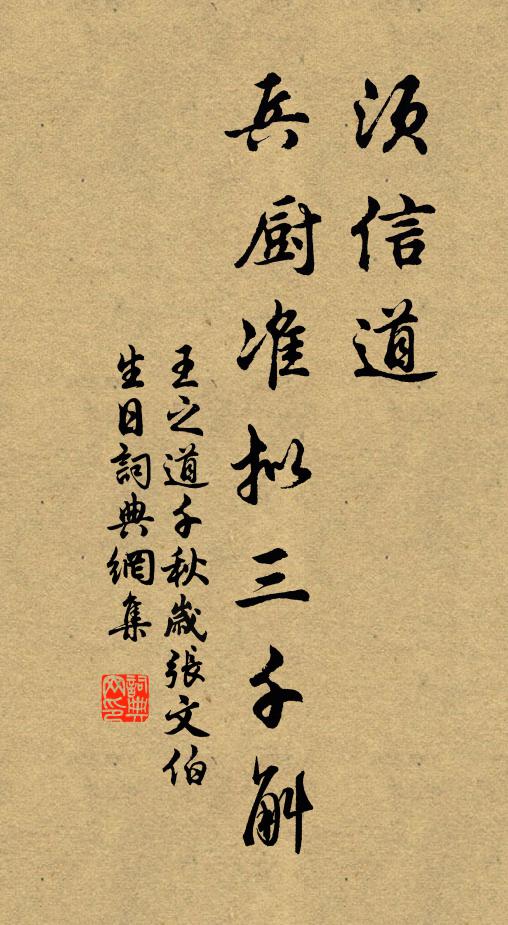 须信道
兵厨准拟三千斛
王之道千秋歲張文伯
生日詞典網集
詞典